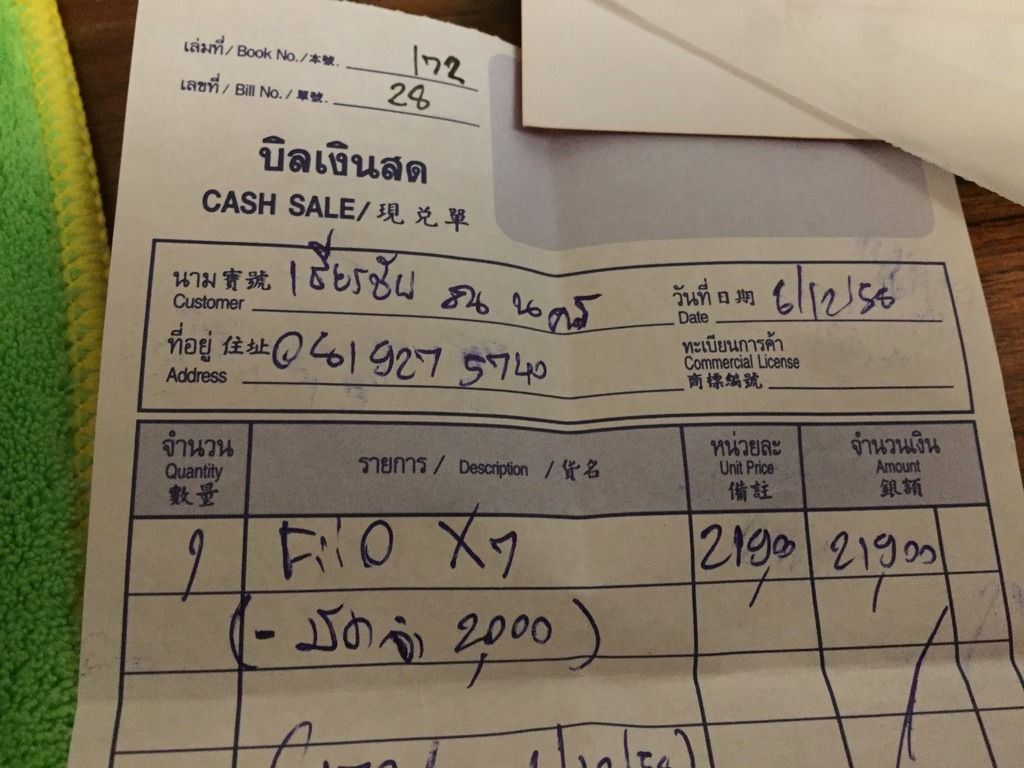 เล่มที่ / Book No. / 本號. 172
เลขที่ / Bill No. / 單號. 28
บิลเงินสด
CASH SALE/ 現兑單
นาม 寶號 เธียรชัย
Customer
วันที่ 日期 6/12/58
Date
ที่อยู่ 住址 081 927 5740
Address
ทะเบียนการค้า
Commercial License
商標編號
จำนวน Quantity 數量
รายการ / Description / 貨名
หน่วยละ Unit Price 備註
จำนวนเงิน Amount 銀額
1 FiiO X7 21,900 21,900
(- มัดจำ 2,000)